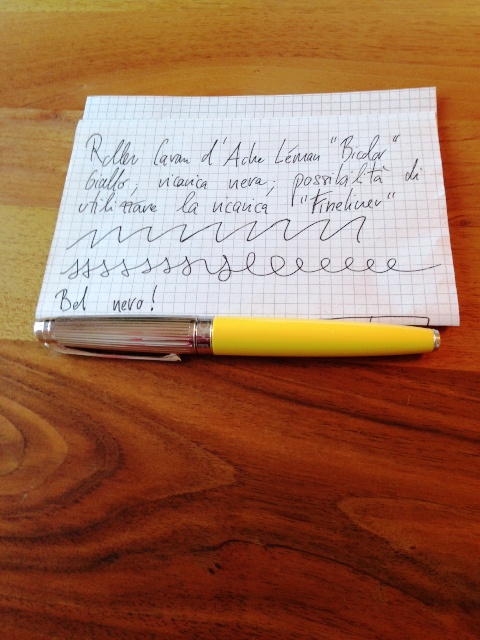 Roller Caran d'Ache Léman "Bicolor"
Giallo, ricarica nera; possibilità di
utilizzare la ricarica "Fineliner"
Bel nero!